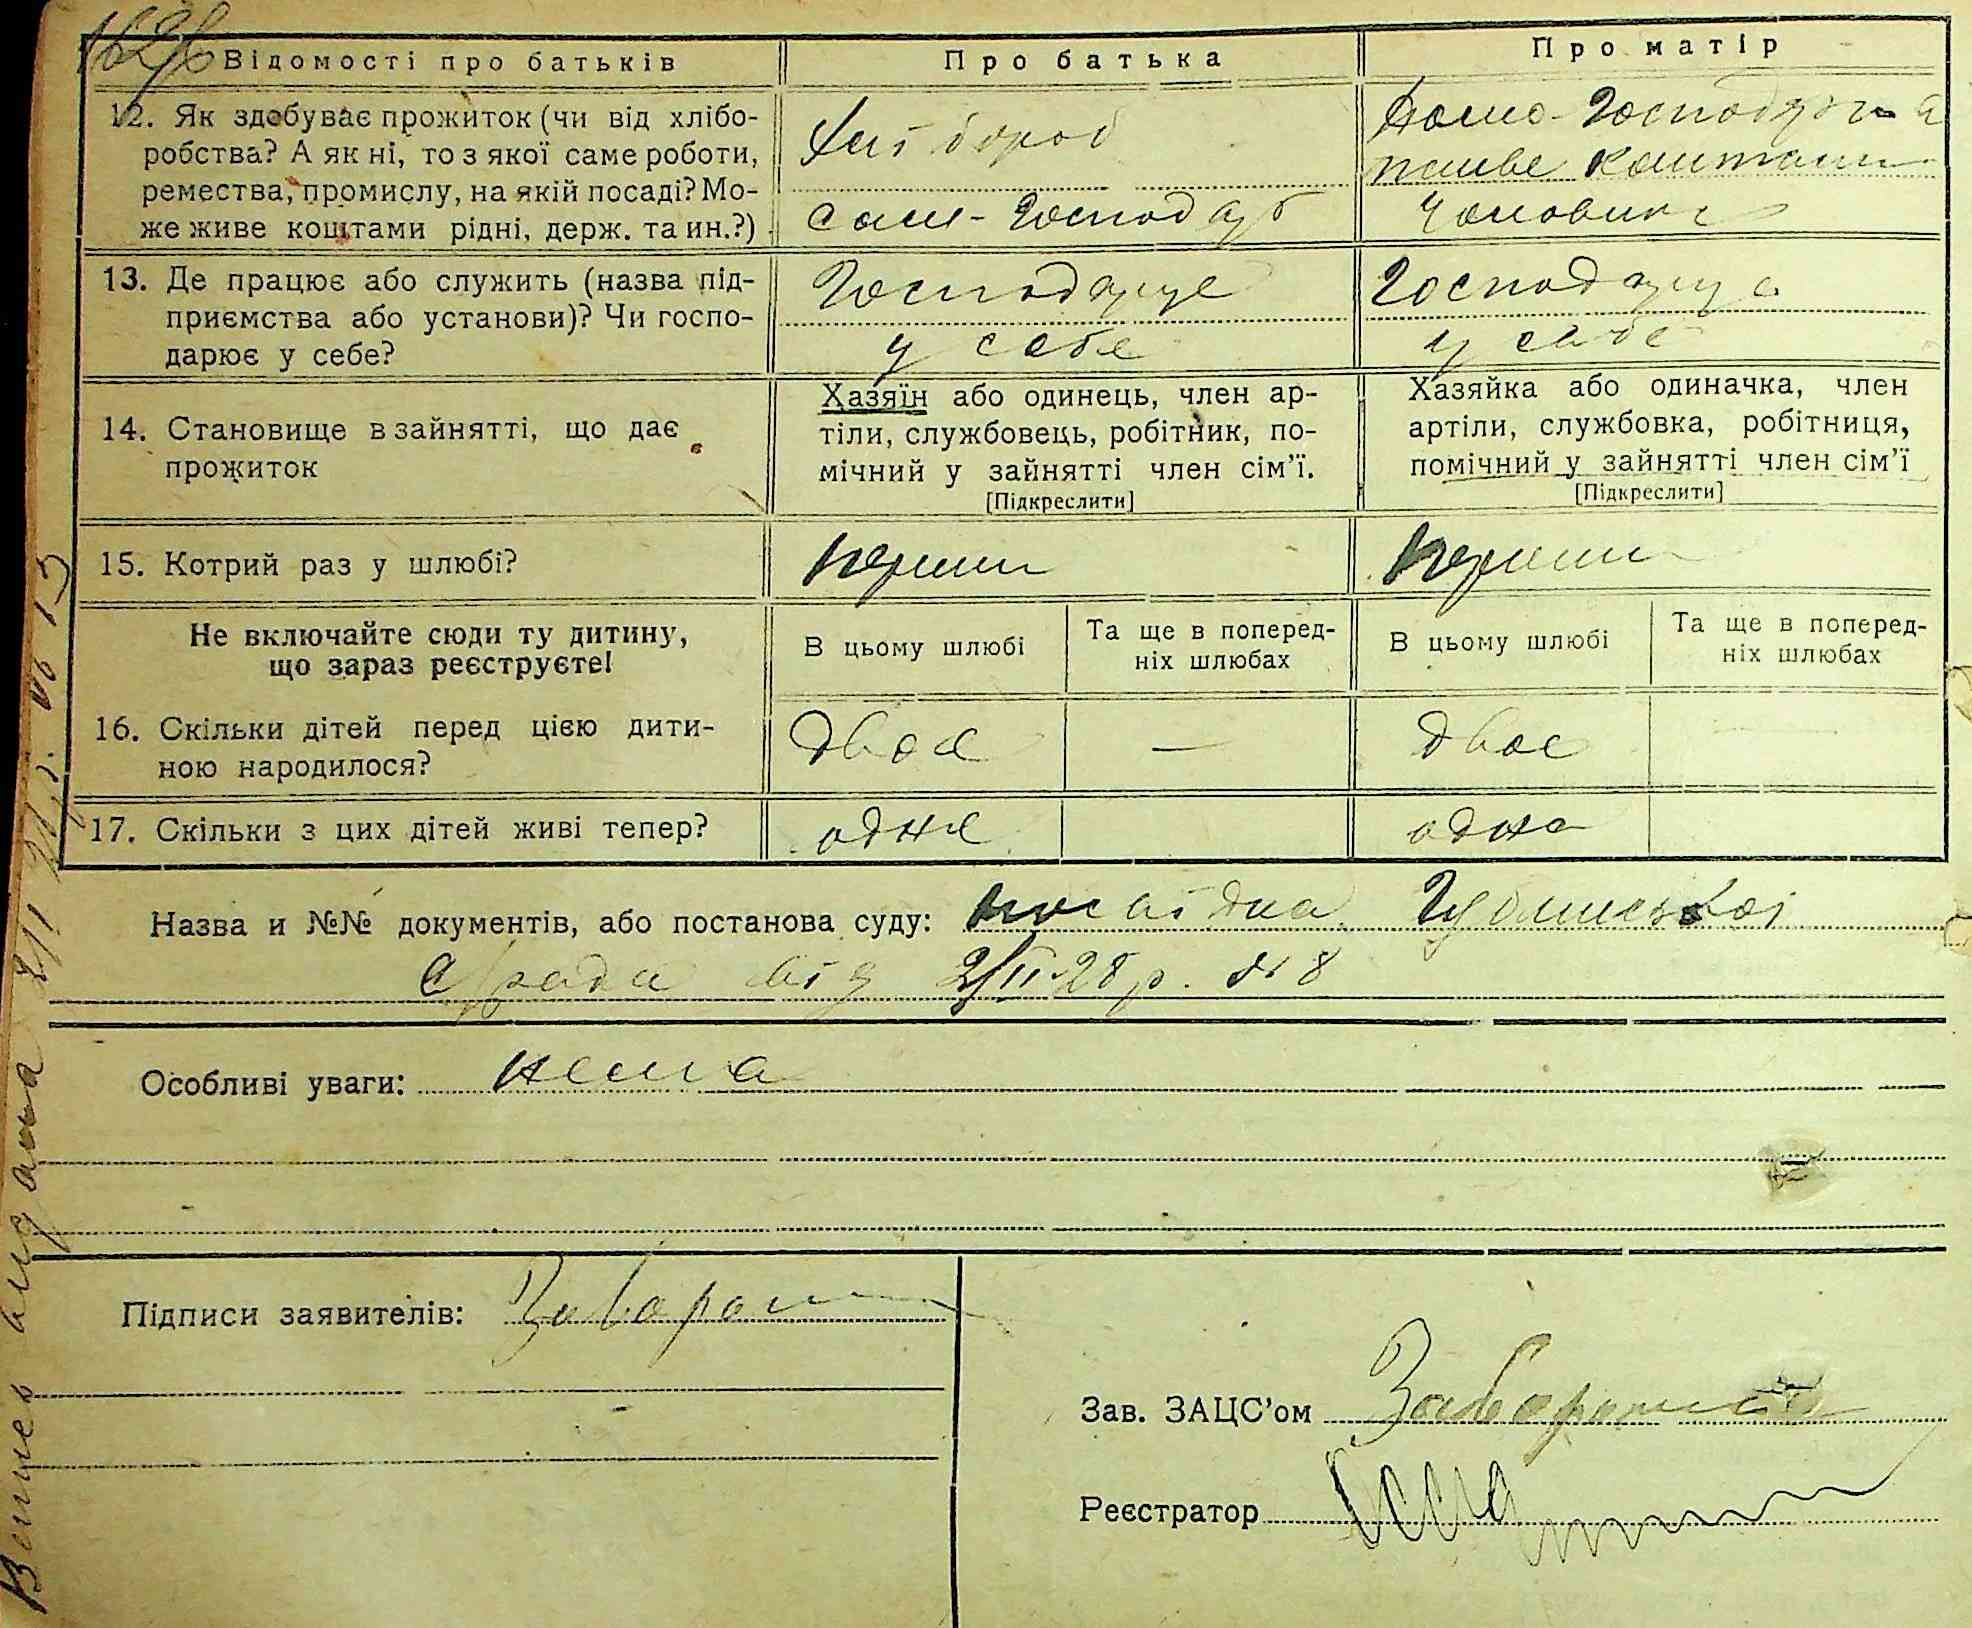 Відомості про батьків
Про батька
Про матір
12. Як здобуває прожиток (чи від хлібо-
робства? А як ні, то з якої саме роботи,
ремества, промислу, на якій посаді? Мо-
же живе коштами рідні, держ. та ин.?)
Хлібороб
сам-Господар
Домо-Господарка
живе коштами
чоловіка
13. Де працює або служить (назва під-
приємства або установи)? Чи госпо-
дарює у себе?
Господарує
у себе
Господарує
у себе
14. Становище в зайнятті, що дає
прожиток
Хазяїн або одинець, член ар-
тіли, службовець, робітник, по-
мічний у зайнятті член сім’ї.
[Підкреслити]
Хазяйка або одиначка, член
артіли, службовка, робітниця,
помічний у зайнятті член сім’ї
[Підкреслити]
15. Котрий раз у шлюбі?
перший
перший
Не включайте сюди ту дитину,
що зараз реєструєте!
В цьому шлюбі
Та ще в поперед-
ніх шлюбах
В цьому шлюбі
Та ще в поперед-
ніх шлюбах
16. Скільки дітей перед цією дити-
ною народилося?
двоє
—
двоє
17. Скільки з цих дітей живі тепер?
одне
одно
Назва и №№ документів, або постанова суду: посвідка
с/ради від 2/II-28 р. № 8
Особливі уваги: нема
Підписи заявителів:
Зав. ЗАЦС’ом
Реєстратор